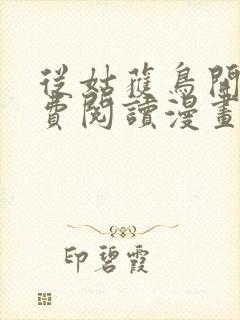 從姑蘇鳥開
費閱讀漫畫
印碧霞